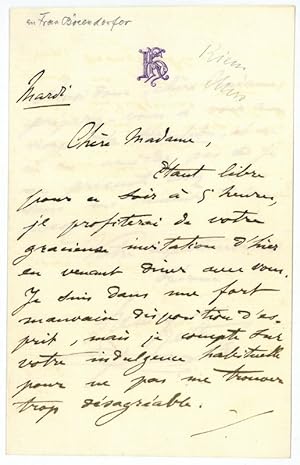 an Frau Bösendorfer
Mardi
Chère Madame,
Etant libre
pour ce soir à 5 heures,
je profiterai de votre
gracieuse invitation d'hier
en venant diner avec vous.
Je suis dans une fort
mauvaise disposition d'es-
prit, mais je compte sur
votre indulgence habituelle
pour ne pas me trouver
trop désagréable.